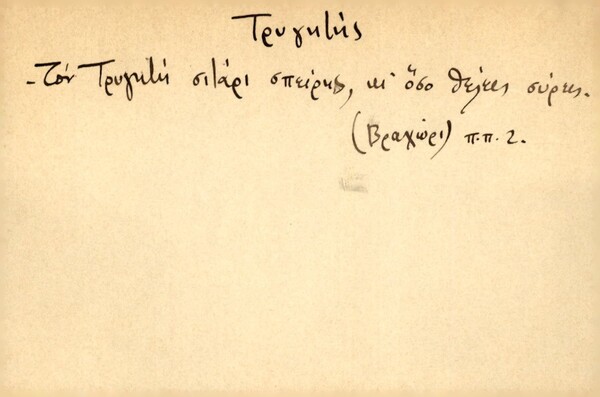 Τρυγητής
- Τόν Τρυγητή σιτάρι σπείρες, κι' ὅσο θέλεις σύρες.
(Βραχώρι) π.π. 2.